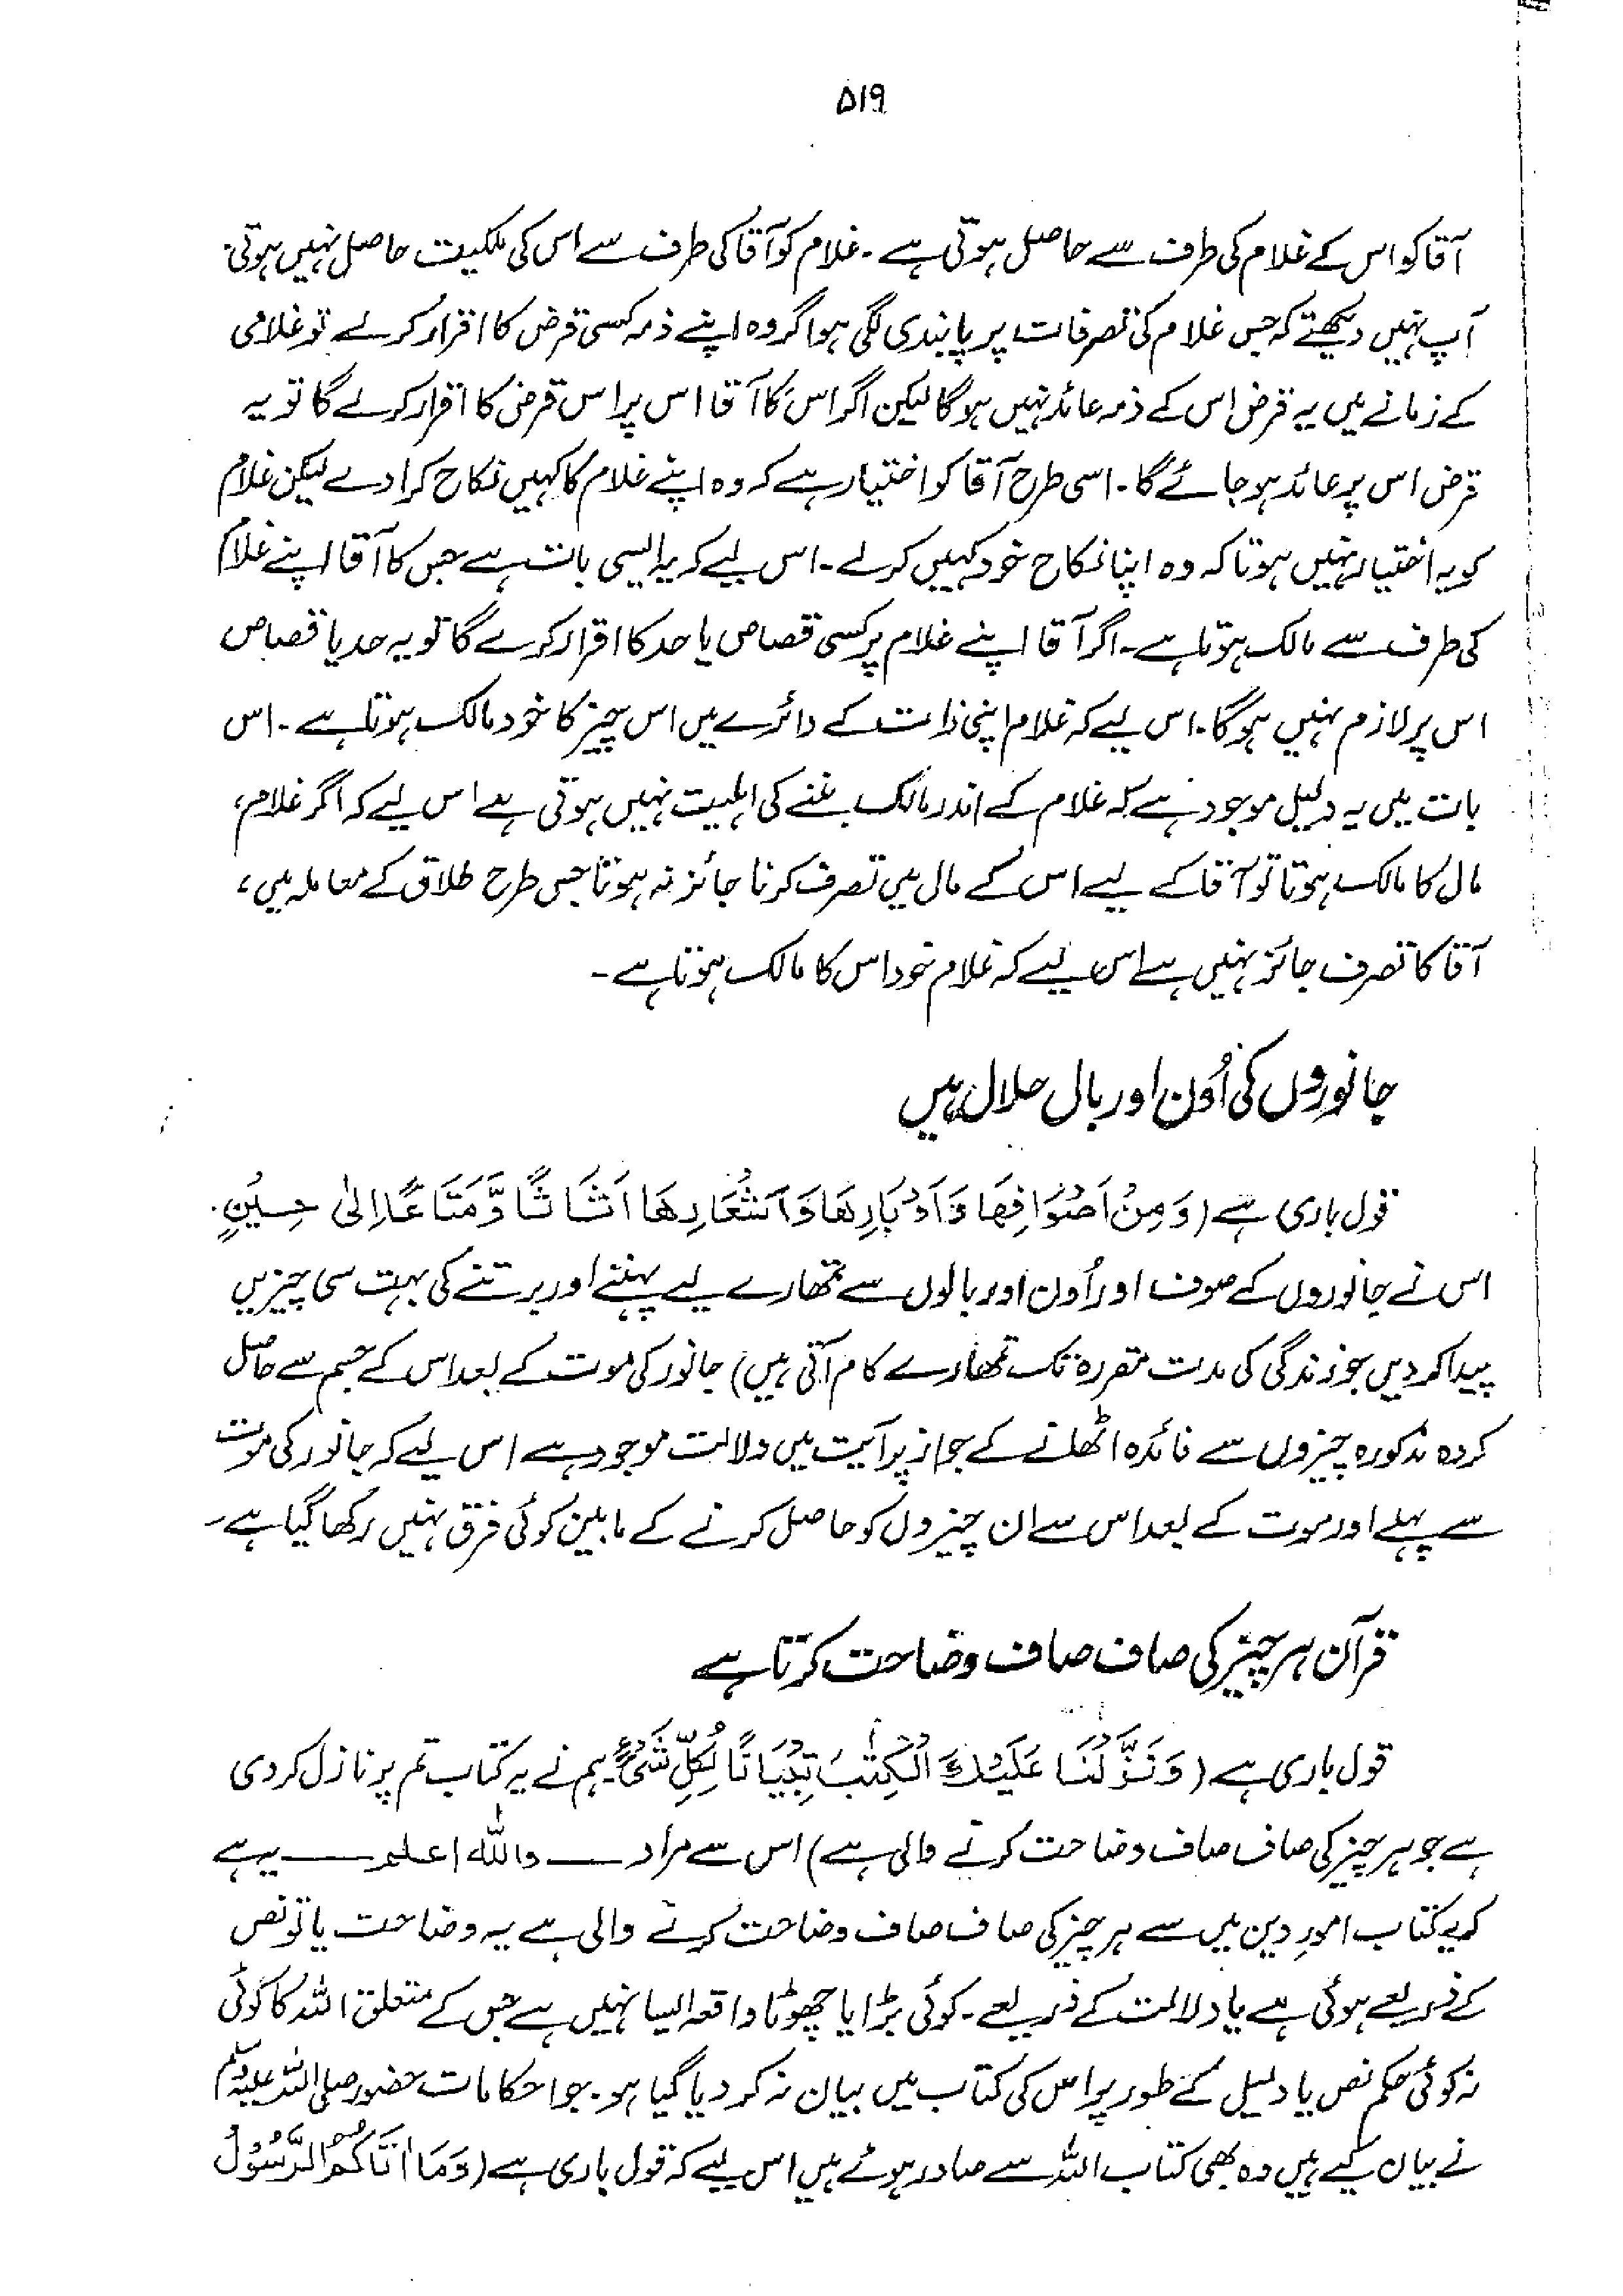 ۵۱۹
آقا کو اس کے غلام کی طرف سے حاصل ہوتی ہے ۔ غلام کو آقا کی طرف سے اس کی ملکیت حاصل نہیں ہوتی۔
آپ نہیں دیکھتے کہ جس غلام کی تصرفات پر پابندی لگی ہو اگر وہ اپنے ذمہ کسی قرض کا اقرار کر لے تو غلامی
کے زمانے میں یہ قرض اس کے ذمہ عائد نہیں ہوگا لیکن اگر اس کا آقا اس پر اس قرض کا اقرار کرلے گا تو یہ
قرض اس پر عائد ہو جائے گا ۔ اسی طرح آقا کو اختیار ہے کہ وہ اپنے غلام کا کہیں نکاح کرا دے لیکن غلام
کو یہ اختیار نہیں ہوتا کہ وہ اپنا نکاح خود کہیں کرلے ۔ اس لیے کہ یہ ایسی بات ہے جس کا آقا اپنے غلام
کی طرف سے مالک ہوتا ہے ۔ اگر آقا اپنے غلام پر کسی قصاص یا حد کا اقرار کرے گا تو یہ حد یا قصاص
اس پر لازم نہیں ہوگا ۔ اس لیے کہ غلام اپنی ذات کے دائرے میں اس چیز کا خود مالک ہوتا ہے ۔ اس
بات میں یہ دلیل موجود ہے کہ غلام کے اندر مالک بننے کی اہلیت نہیں ہوتی ہے اس لیے کہ اگر غلام،
مال کا مالک ہوتا تو آقا کے لیے اس کے مال میں تصرف کرنا جائز نہ ہوتا جس طرح طلاق کے معاملہ میں،
آقا کا تصرف جائز نہیں ہے اس لیے کہ غلام خود اس کا مالک ہوتا ہے ۔
جانوروں کی اُون اور بال حلال ہیں
قول باری ہے (وَمِنْ اَصْوَافِهَا وَاَوْبَارِهَا وَاَشْعَارِهَا اَثَاثًا وَّمَتَاعًا اِلٰى حِيْنٍ۔
اس نے جانوروں کے صوف اور اُون اور بالوں سے تمھارے لیے پہننے اور برتنے کی بہت سی چیزیں
پیدا کر دیں جو زندگی کی مدت مقررہ تک تمھارے کام آتی ہیں) جانور کی موت کے بعد اس کے جسم سے حاصل
کردہ مذکورہ چیزوں سے فائدہ اٹھانے کے جواز پر آیت میں دلالت موجود ہے اس لیے کہ جانور کی موت
سے پہلے اور موت کے بعد اس سے ان چیزوں کو حاصل کرنے کے مابین کوئی فرق نہیں رکھا گیا ہے ۔
قرآن ہر چیز کی صاف صاف وضاحت کرتا ہے
قول باری ہے (وَنَزَّلْنَا عَلَيْكَ الْكِتٰبَ تِبْيَانًا لِّكُلِّ شَىْءٍ ہم نے یہ کتاب تم پر نازل کر دی
ہے جو ہر چیز کی صاف صاف وضاحت کرنے والی ہے) اس سے مراد ـــ واللہ اعلم ـــ یہ ہے
کہ یہ کتاب امورِ دین میں سے ہر چیز کی صاف صاف وضاحت کرنے والی ہے یہ وضاحت یا تو نص
کے ذریعے ہوئی ہے یا دلالت کے ذریعے ۔ کوئی بڑا یا چھوٹا واقعہ ایسا نہیں ہے جس کے متعلق اللہ کا کوئی
نہ کوئی حکم نص یا دلیل کے طور پر اس کی کتاب میں بیان نہ کر دیا گیا ہو ۔ جو احکامات حضور صلی اللہ علیہ وسلم
نے بیان کیے ہیں وہ بھی کتاب اللہ سے صادر ہوئے ہیں اس لیے کہ قول باری ہے (وَمَا اٰتَاكُمُ الرَّسُوْلُ